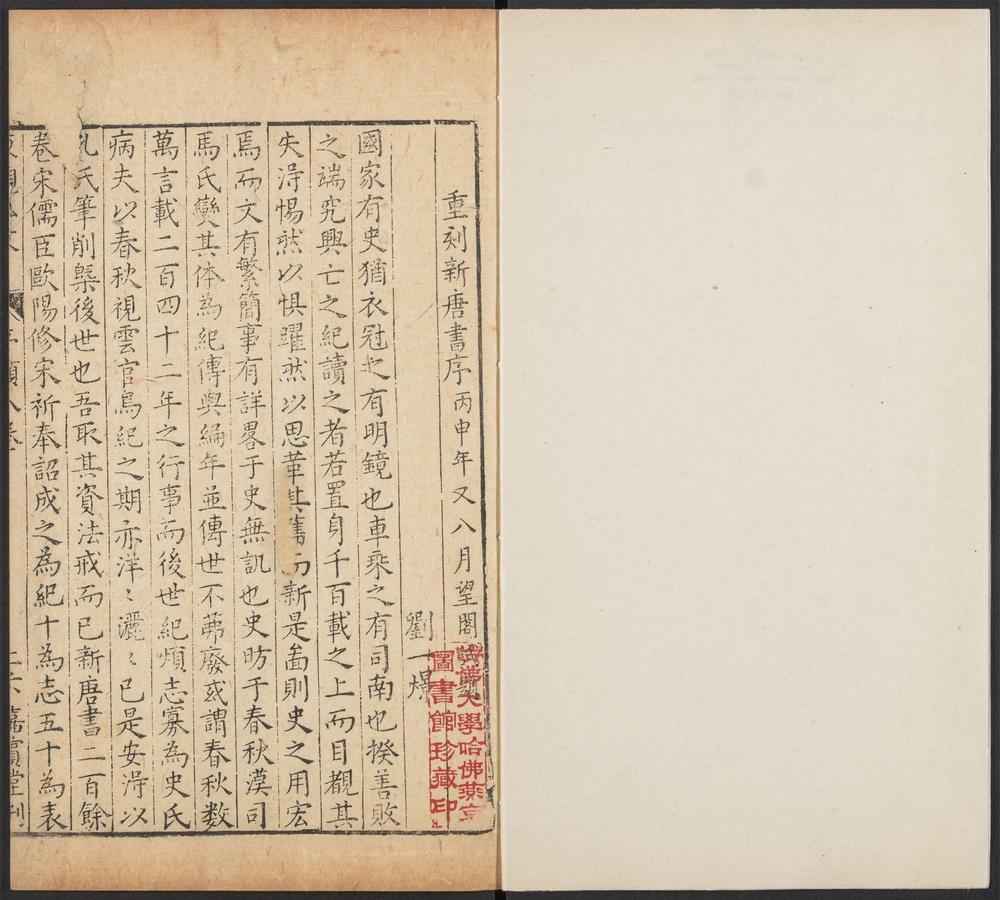 重刻新唐書序丙申年又八月望閣
劉一燝
國家有史猶衣冠之有明鏡也車乘之有司南也揆善敗
之端究興亡之紀讀之者若置身千百載之上而目覩其
失淂惕然以惧躍然以思革其舊而新是啚則史之用宏
焉而文有繁簡事有詳畧于史無訊也史昉于春秋漢司
馬氏變其体為紀傳與編年並傳世不苐廢或謂春秋数
萬言載二百四十二年之行事而後世紀煩志寡為史氏
病夫以春秋視雲官鳥紀之期亦洋〻灑〻已是安淂以
孔氏筆削槩後世也吾取其資法戒而已新唐書二百餘
卷宋儒臣歐陽修宋祈奉詔成之為紀十為志五十為表
哈佛大學哈佛燕京
圖書館珍藏印